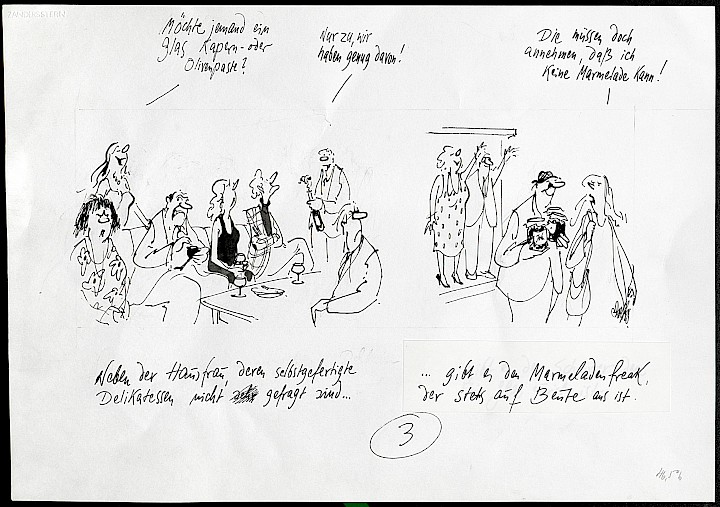 Möchte jemand ein
Glas Kapern- oder
Olivenpaste?
Nur zu, wir
haben genug davon!
Die müssen doch
annehmen, daß ich
keine Marmelade kann!
Neben der Hausfrau, deren selbstgefertigte
Delikatessen nicht gefragt sind...
... gibt es den Marmeladenfreak,
der stets auf Beute aus ist.
3